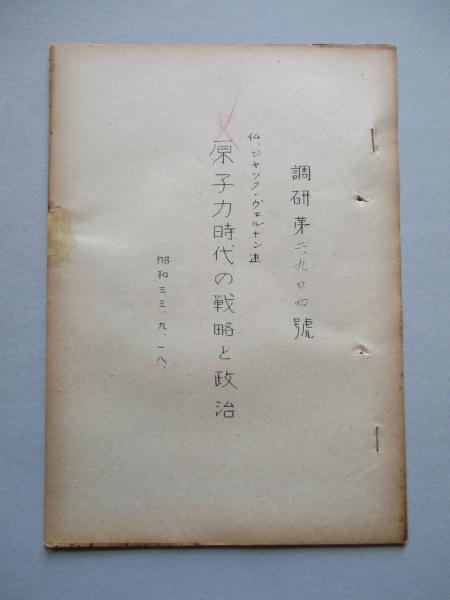 調研第二、九〇四號
仏、ジャック・ヴェルナン述
原子力時代の戦略と政治
昭和三三、九、一八、